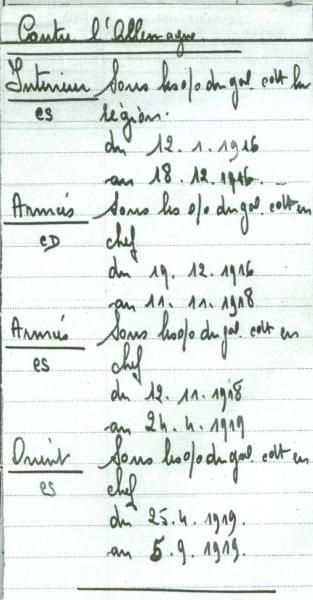 Contre l'Allemagne
Intérieur Sous les o/o du gal. cdt la
CS région.
du 12.1.1916
au 18.12.1916.
Armées Sous les o/o du gal. cdt en
CD chef
du 19.12.1916
au 11.11.1918
Armées Sous les o/o du gal. cdt en
CS chef
du 12.11.1918
au 24.4.1919
Orient Sous les o/o du gal. cdt en
CS chef
du 25.4.1919.
au 5.9.1919.